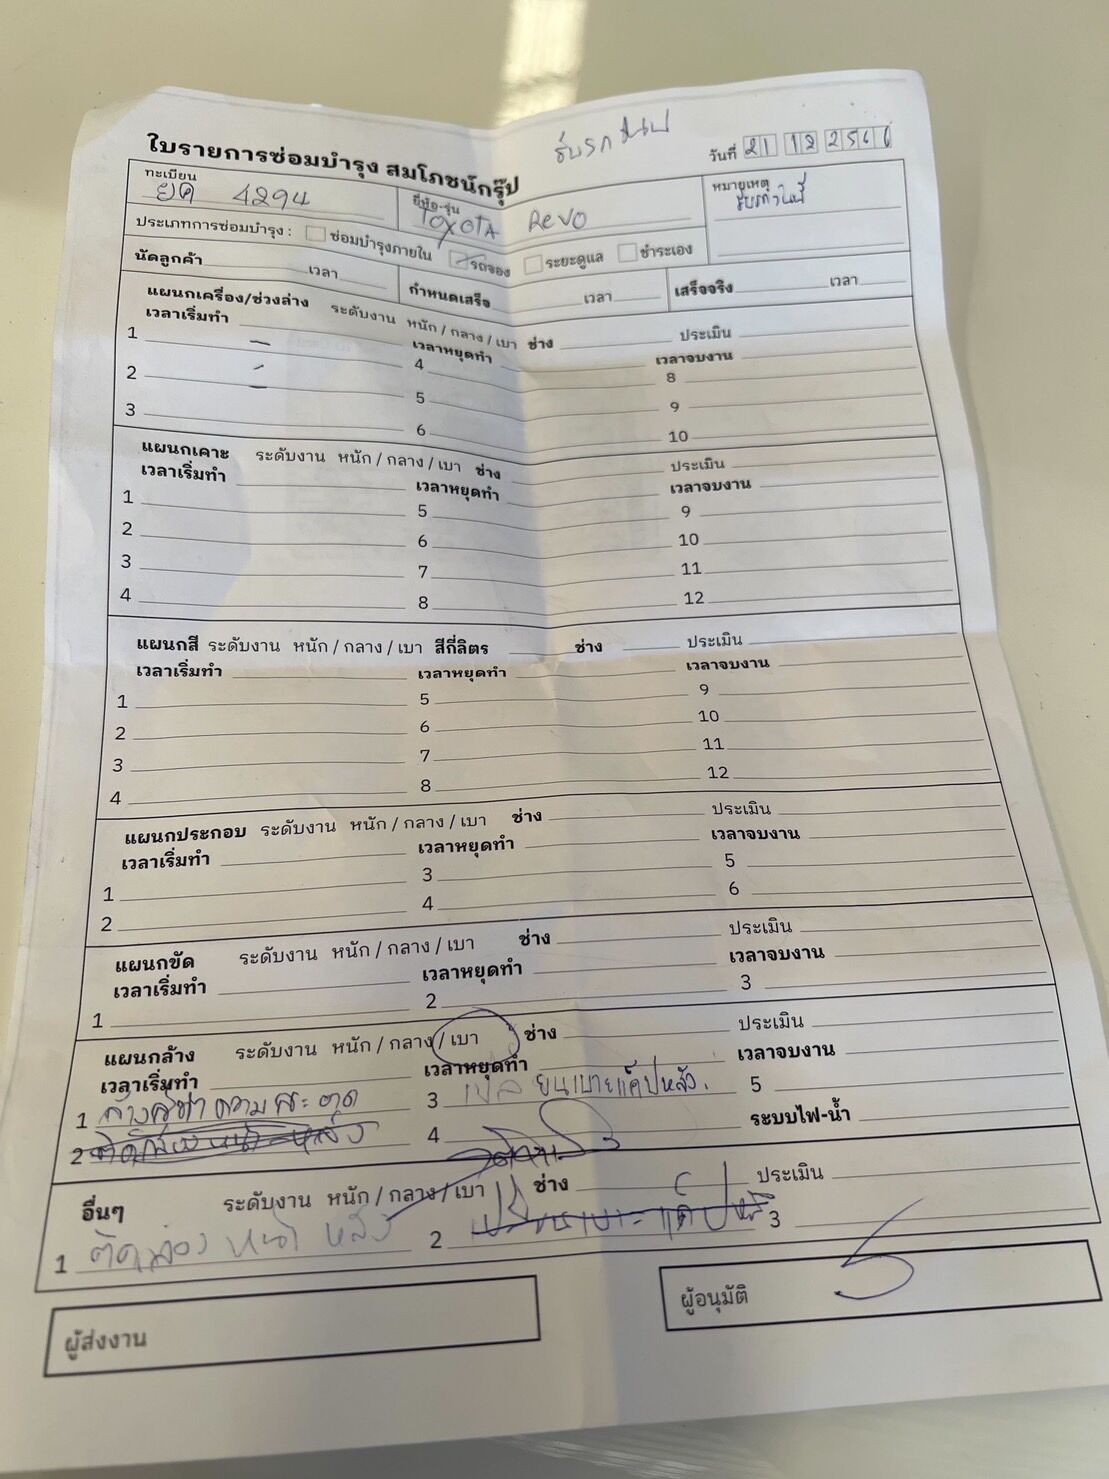 ใบรายการซ่อมบำรุง สมโภชน์กรุ๊ป
วันที่ 21 12 2566
ทะเบียน ยค 4294 ยี่ห้อ-รุ่น TOYOTA Revo
หมายเหตุ
ประเภทการซ่อมบำรุง : ซ่อมบำรุงภายใน รถจอง ระยะดูแล ชำระเอง
นัดลูกค้า เวลา กำหนดเสร็จ เวลา เสร็จจริง เวลา
แผนกเครื่อง/ช่วงล่าง ระดับงาน หนัก / กลาง / เบา ช่าง ประเมิน
เวลาเริ่มทำ เวลาหยุดทำ เวลาจบงาน
1 4 8
2 5 9
3 6 10
แผนกเคาะ ระดับงาน หนัก / กลาง / เบา ช่าง ประเมิน
เวลาเริ่มทำ เวลาหยุดทำ เวลาจบงาน
1 5 9
2 6 10
3 7 11
4 8 12
แผนกสี ระดับงาน หนัก / กลาง / เบา สีกี่ลิตร ช่าง ประเมิน
เวลาเริ่มทำ เวลาหยุดทำ เวลาจบงาน
1 5 9
2 6 10
3 7 11
4 8 12
แผนกประกอบ ระดับงาน หนัก / กลาง / เบา ช่าง ประเมิน
เวลาเริ่มทำ เวลาหยุดทำ เวลาจบงาน
1 3 5
2 4 6
แผนกขัด ระดับงาน หนัก / กลาง / เบา ช่าง ประเมิน
เวลาเริ่มทำ เวลาหยุดทำ เวลาจบงาน
1 2 3
แผนกล้าง ระดับงาน หนัก / กลาง / เบา ช่าง ประเมิน
เวลาเริ่มทำ เวลาหยุดทำ เวลาจบงาน
1 ความสะอาด 3 แค็ปหลัง 5
2 4 ระบบไฟ-น้ำ
อื่นๆ ระดับงาน หนัก / กลาง / เบา ช่าง ประเมิน
1 หน้า หลัง 2 3
ผู้ส่งงาน ผู้อนุมัติ